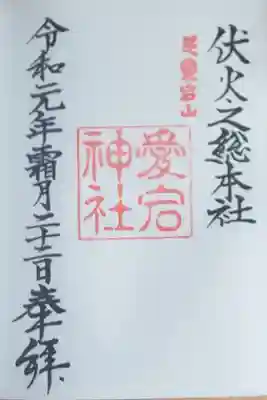 伏火之総本社
愛宕山
愛宕
神社
令和元年霜月二十二日奉拝